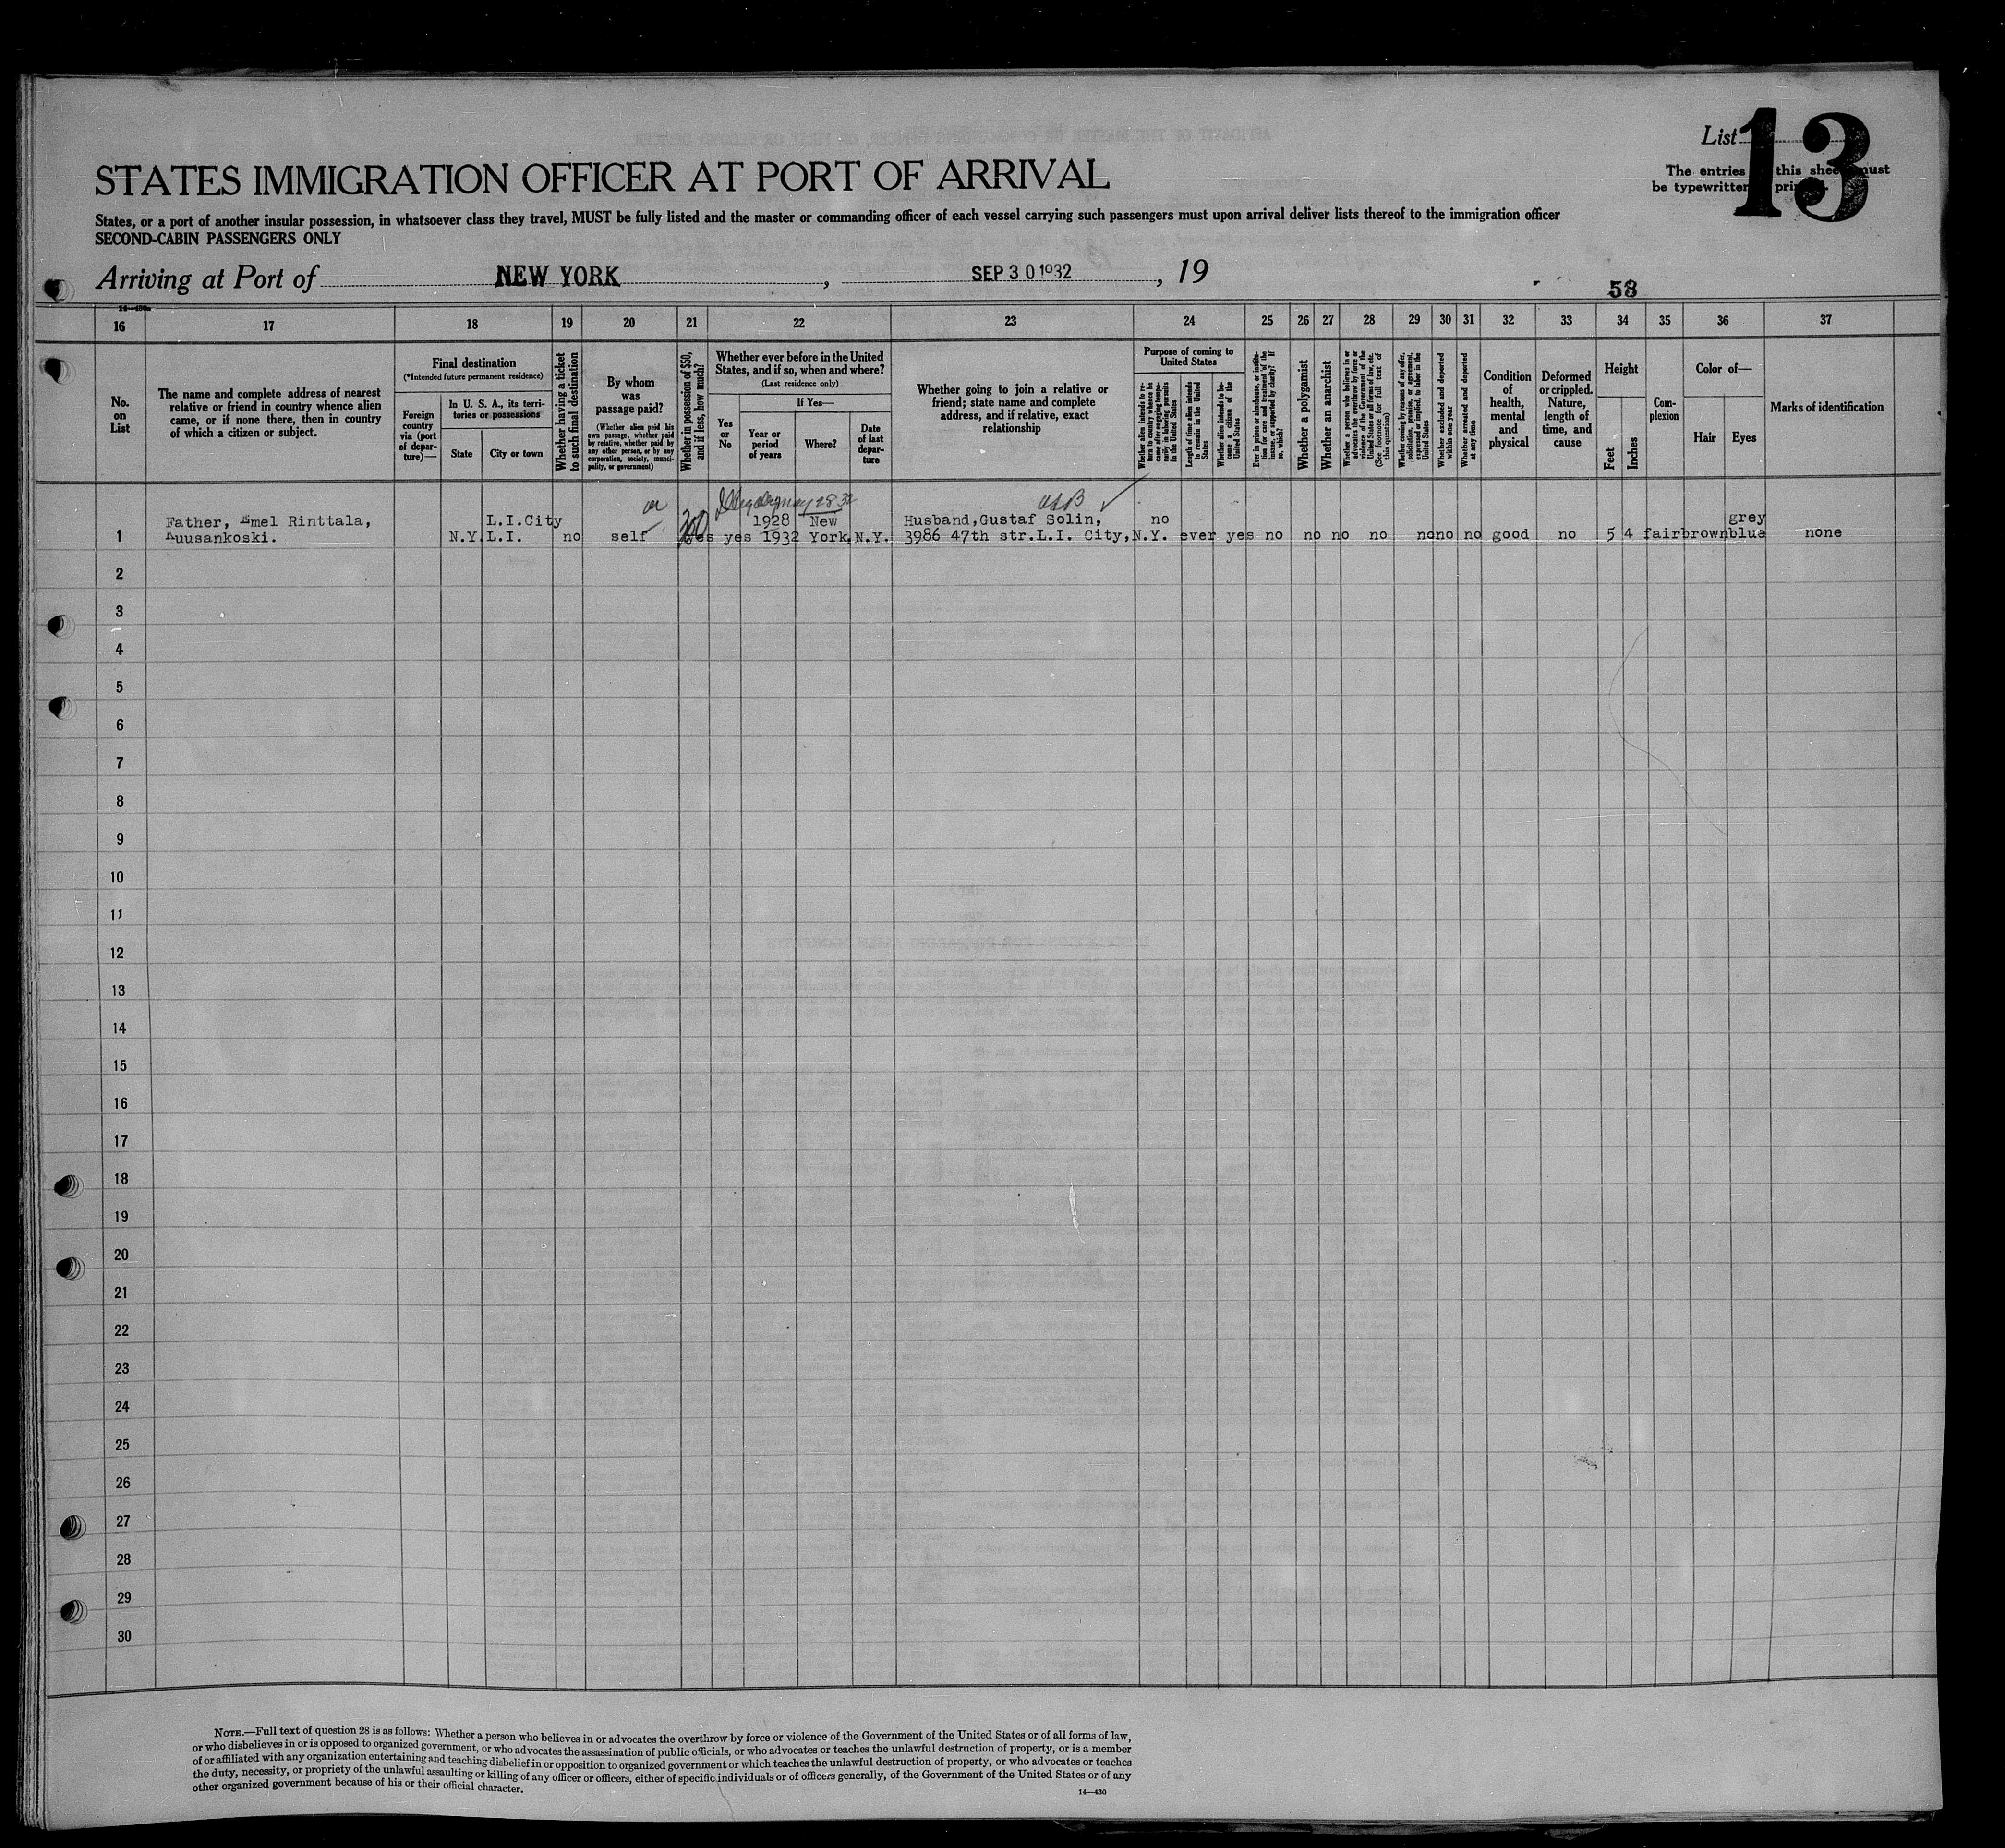 List 13
The entries this sheet must
be typewritten
STATES IMMIGRATION OFFICER AT PORT OF ARRIVAL
States, or a port of another insular possession, in whatsoever class they travel, MUST be fully listed and the master or commanding officer of each vessel carrying such passengers must upon arrival deliver lists thereof to the immigration officer
SECOND-CABIN PASSENGERS ONLY
Arriving at Port of NEW YORK, SEP 30 1932, 19
53
16 17 18 19 20 21 22 23 24 25 26 27 28 29 30 31 32 33 34 35 36 37
No.
on
List
The name and complete address of nearest
relative or friend in country whence alien
came, or if none there, then in country
of which a citizen or subject.
Final destination
(*Intended future permanent residence)
Foreign
country
via (port
of depar-
ture)—
In U. S. A., its terri-
tories or possessions
State
City or town
Whether having a ticket
to such final destination
By whom
was
passage paid?
(Whether alien paid his
own passage, whether paid
by relative, whether paid by
any other person, or by any
corporation, society, munici-
pality, or government)
Whether in possession of $50,
and if less, how much?
Whether ever before in the United
States, and if so, when and where?
(Last residence only)
Yes
or
No
If Yes—
Year or
period
of years
Where?
Date
of last
depar-
ture
Whether going to join a relative or
friend; state name and complete
address, and if relative, exact
relationship
Purpose of coming to
United States
Whether alien intends to re-
turn to country whence he
came after engaging tempo-
rarily in laboring pursuits
in the United States
Length of time alien intends
to remain in the United
States
Whether alien intends to be-
come a citizen of the
United States
Ever in prison or almshouse, or institu-
tion for care and treatment of the
insane, or supported by charity? If
so, which?
Whether a polygamist
Whether an anarchist
Whether a person who believes in or
advocates the overthrow by force or
violence of the Government of the
United States or all forms of law, etc.
(See footnote for full text of
this question)
Whether coming by reason of any offer,
solicitation, promise, or agreement,
expressed or implied, to labor in the
United States
Whether excluded and deported
within one year
Whether arrested and deported
at any time
Condition
of
health,
mental
and
physical
Deformed
or crippled.
Nature,
length of
time, and
cause
Height
Feet
Inches
Com-
plexion
Color of—
Hair
Eyes
Marks of identification
May 28 32
USB
L.I.City 1928 New Husband,Gustaf Solin, no grey
Father, Emel Rinttala,
Kuusankoski.
1 N.Y. L.I. no self yes yes 1932 York, N.Y. 3986 47th str.L.I. City,N.Y. ever yes no no no no no no no good no 5 4 fair brown blue none
2
3
4
5
6
7
8
9
10
11
12
13
14
15
16
17
18
19
20
21
22
23
24
25
26
27
28
29
30
NOTE.—Full text of question 28 is as follows: Whether a person who believes in or advocates the overthrow by force or violence of the Government of the United States or of all forms of law,
or who disbelieves in or is opposed to organized government, or who advocates the assassination of public officials, or who advocates or teaches the unlawful destruction of property, or is a member
of or affiliated with any organization entertaining and teaching disbelief in or opposition to organized government or which teaches the unlawful destruction of property, or who advocates or teaches
the duty, necessity, or propriety of the unlawful assaulting or killing of any officer or officers, either of specific individuals or of officers generally, of the Government of the United States or of any
other organized government because of his or their official character.
14—430